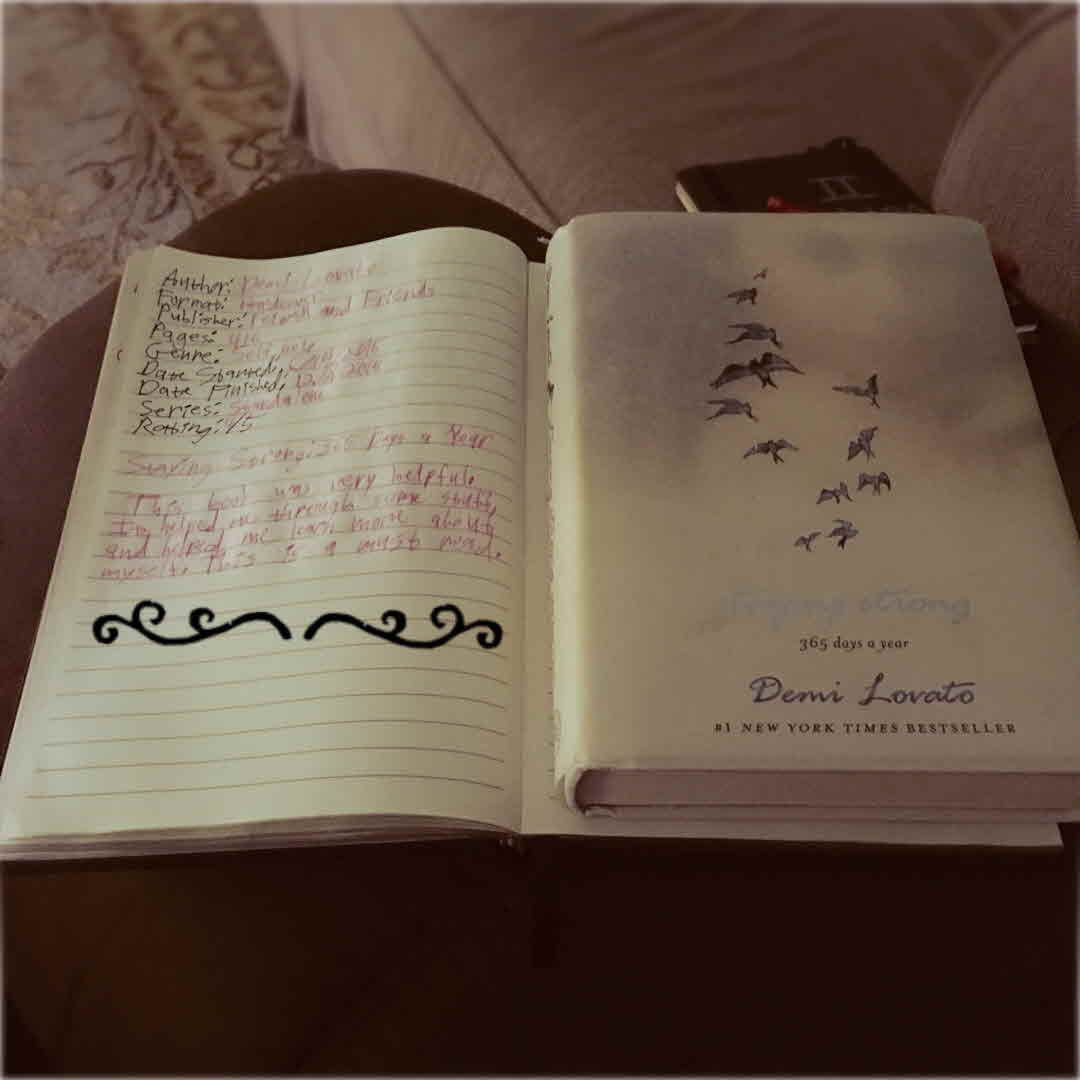 Author: Demi Lovato
Format: Hardcover
Publisher: Feiwel and Friends
Pages: 416
Genre: Self help
Date Started:
Date Finished:
Series: Standalone
Rating:
Staying Strong: 365 Days a Year
This book was very helpful.
helped me through some stuff,
and helped me learn more about
myself. This is a must read.
II
staying strong
365 days a year
Demi Lovato
#1 NEW YORK TIMES BESTSELLER